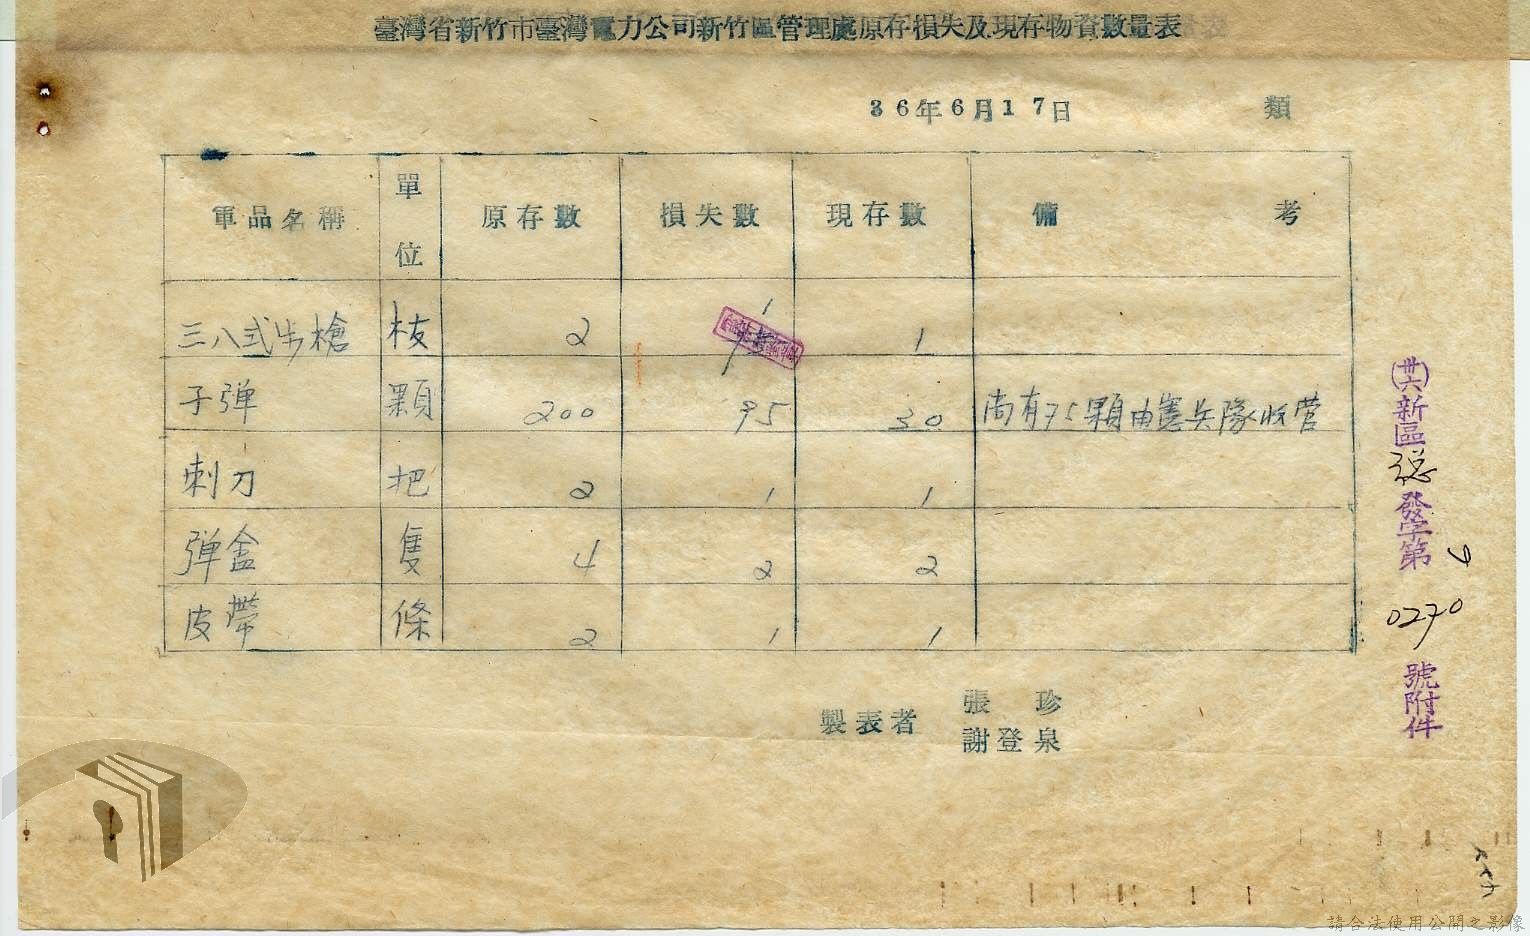 臺灣省新竹市臺灣電力公司新竹區管理處原存損失及現存物資數量表
36年6月17日 類
軍品名稱 單位 原存數 損失數 現存數 備考
三八式步槍 枝 2 1 1
子弹 顆 200 95 30 尚有75顆由憲兵隊收管
刺刀 把 2 1 1
弹盒 隻 4 2 2
皮帶 條 2 1 1
製表者 張珍
謝登泉
(卅六)新區总發字第 0270 號附件
請合法使用公開之影像